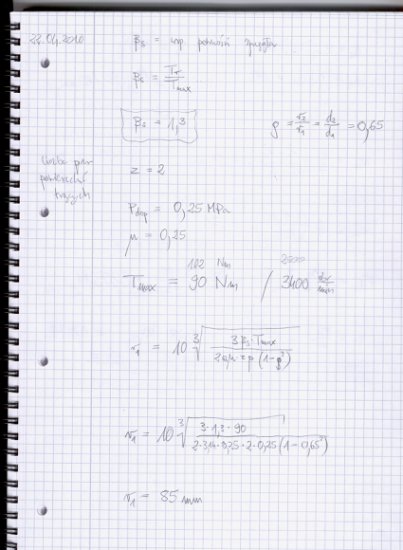 22.04.2010
βs = wsp. pewności sprzęgła
βs = Tr / Tmax
βs = 1,3
ρ = r2/r1 = d2/d1 = 0,65
liczba par
powierzchni
trących
z = 2
Pdop = 0,25 MPa
μ = 0,25
102 Nm 2000
Tmax = 90 Nm / 3400 obr/min
r1 = 10 ∛(3βs·Tmax / 2πμ z p (1-ρ³))
r1 = 10 ∛(3·1,3·90 / 2·3,14·0,25·2·0,25(1-0,65³))
r1 = 85 mm